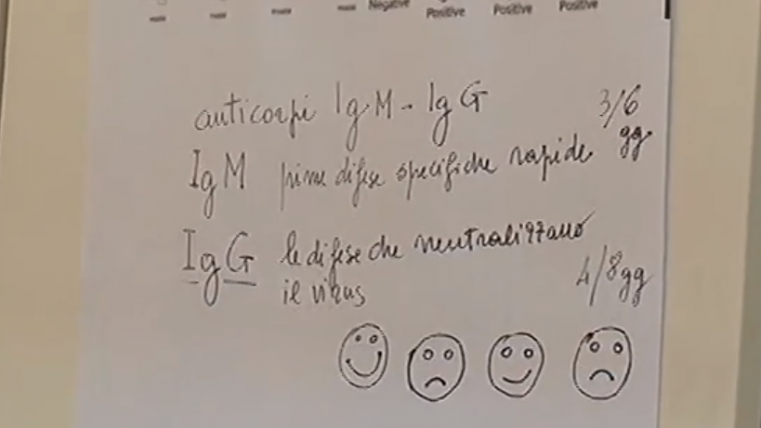 Negative Positive Positive Positive
anticorpi IgM - IgG 3/6 gg
IgM prime difese specifiche rapide
IgG le difese che neutralizzano
il virus 4/8gg